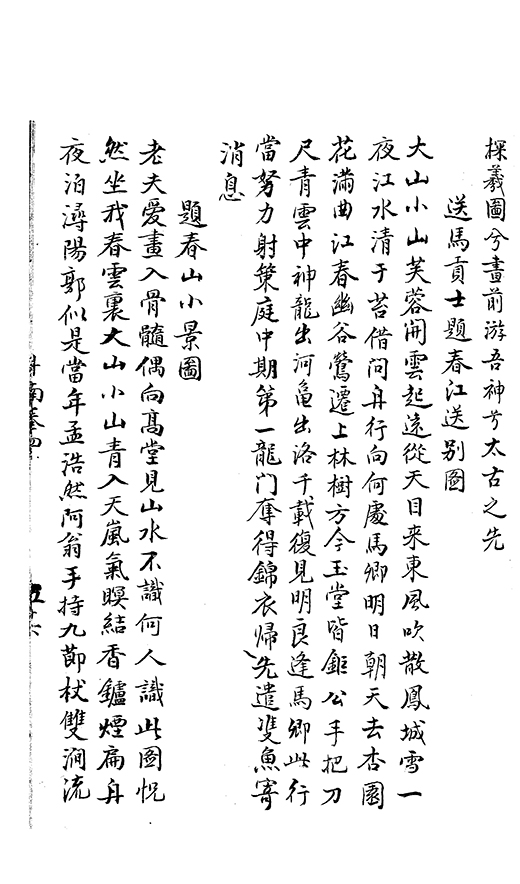 探羲圖兮畫前游吾神兮太古之先
送馬貢士題春江送别圖
大山小山芙蓉開雲起遠從天目来東風吹散鳳城雪一
夜江水清于苔借問舟行向何處馬卿明日朝天去杏園
花滿曲江春幽谷鶯遷上林樹方今玉堂皆鉅公手把刀
尺青雲中神龍出河龜出洛千載復見明良逢馬卿此行
當努力射策庭中期第一龍门奪得錦衣歸先遣雙魚寄
消息
題春山小景圖
老夫愛畫入骨髓偶向髙堂見山水不識何人識此图怳
然坐我春雲裏大山小山青入天嵐氣暝結香鑪煙扁舟
夜泊潯陽郭似是當年孟浩然阿翁手持九節杖雙澗流